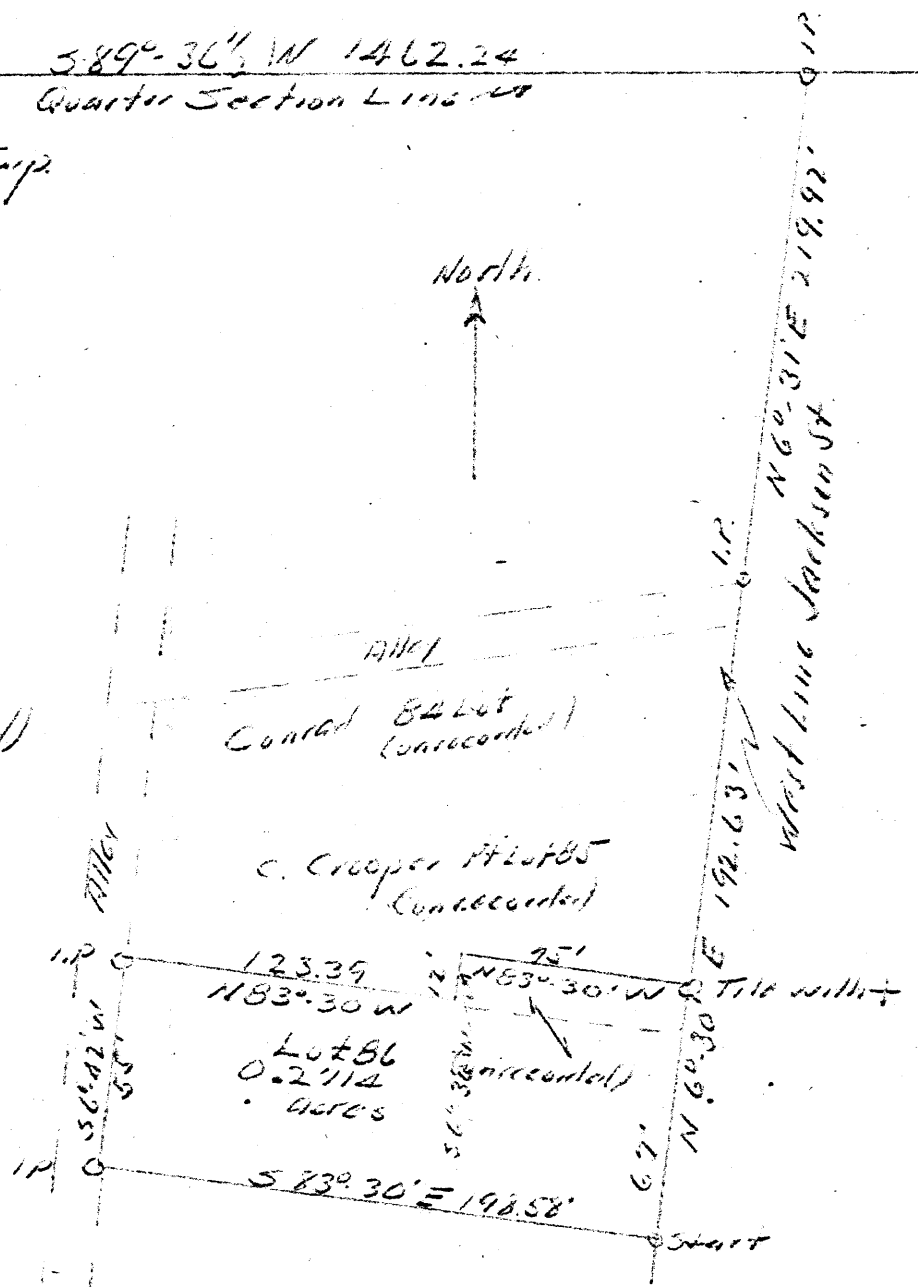 S89°-36'½ W 1462.24
Quarter Section Line
Twp.
I.P.
North
N 6°-31' E 219.92'
West Line Jackson St
I.P.
Alley
Conrad 84 Lot
(unrecorded)
Alley
C. Crooper Pt Lot 85
(unrecorded)
N 6°-30' E 192.63'
I.P.
123.39
N83°-30 W
12'
75'
N83°-30' W
Tile with +
S6°-42' W
55'
Lot 86
0.2714
acres
S6°-30' W
(unrecorded)
67'
I.P.
S 83°-30' E 198.58'
Start